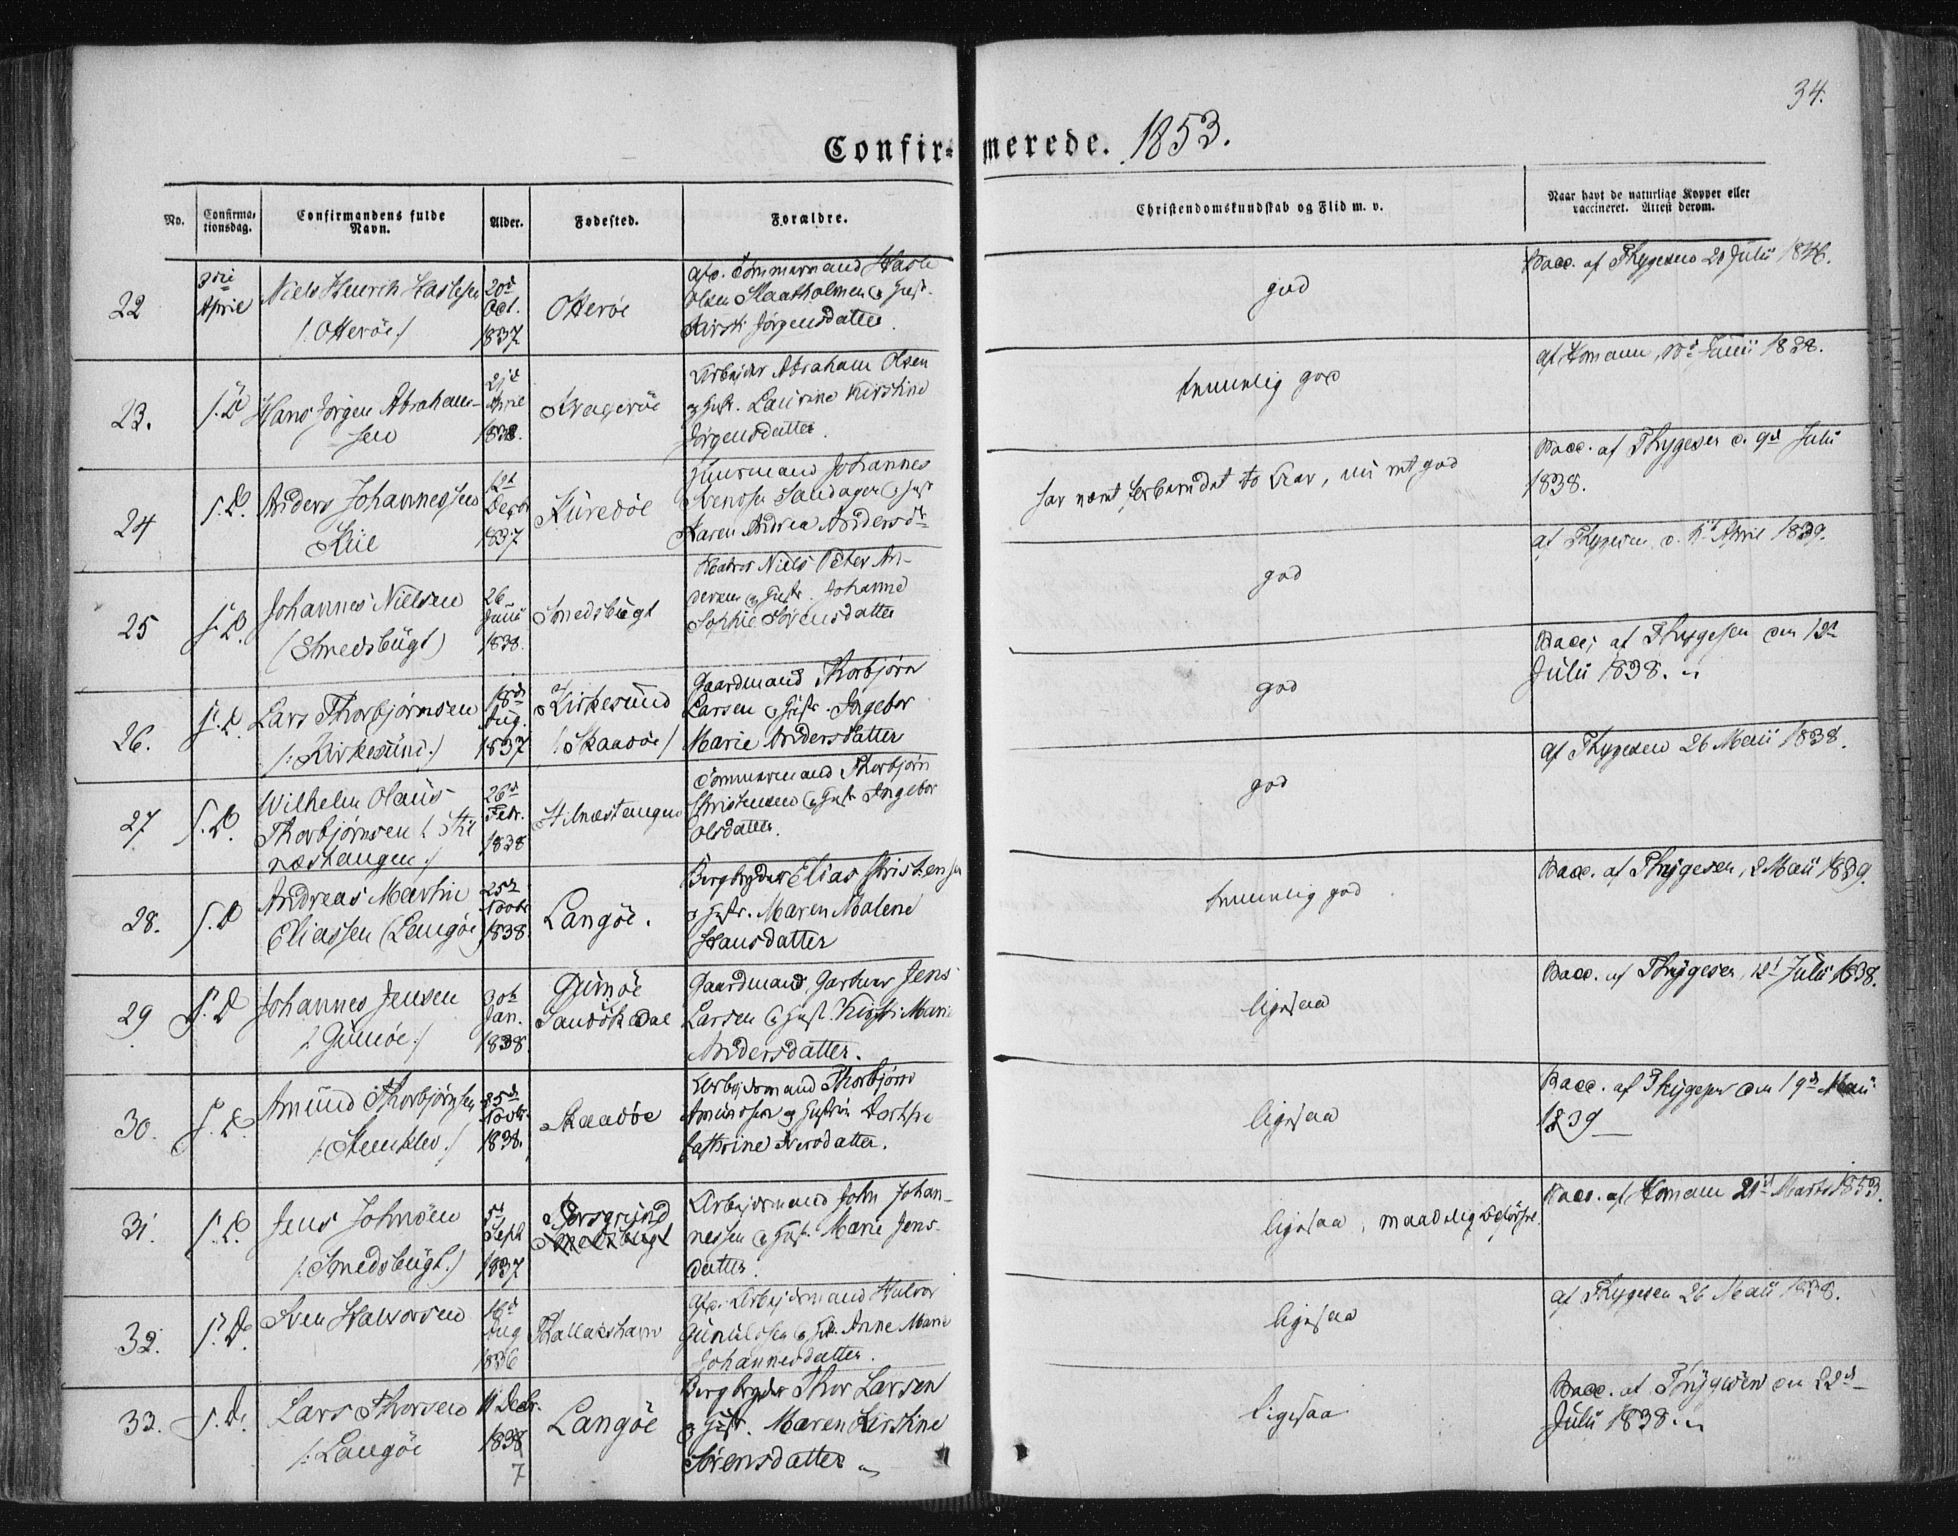 34.
Confirmerede. 1853.
No.
Confirmationsdag.
Confirmandens fulde Navn.
Alder.
Fødested.
Forældre.
Christendomskundskab og Flid m. v.
Naar havt de naturlige Kopper eller vaccineret. Attest derom.
22
3die April
Niels Henrik Haslesen
/: Otterøe :/
20d Oct. 1837
Otterøe
Afd. Tømmermand Hasle
Olsen Slaatholmen & Hust.
Kirsti Jørgensdatter
god
Vacc. af Thygesen 20 Julii 1846.
23.
S. D
Hans Jørgen Abraham-
sen
April 1838.
Kragerøe
Arbejder Abraham Olsen
og Hustr. Laurine Kirstine
Jørgensdatter.
temmelig god
af Homann, Junii 1838.
24
S. D.
Anders Johannessen
Kiil
Decbr 1837
Furedøe
Huusmand Johannes
Svendsen Sandagen & Hust
Karen Andrea Andersdtr
god
Vacc. af Thygesen d. 9d Julii
1838.
25
S. D.
Johannes Nielsen
(Smedsbugt)
26 Junii 1838.
Smedsbugt
Niels Peter An-
dersen & Hustr. Johanne
Sophie Sørensdatter
god
af Thygesen d. April 1839.
26.
S. D.
Lars Thorbjørnsen
/: Kirkesund :/
Aug. 1837
Kirkesund
/: Skaadøe /
Gaardmand Thorbjørn
Larsen & Hustr. Ingebor
Marie Andersdatter
god
Vacc; af Thygesen den 12te
Julii 1838.
27
S. D.
Wilhelm Olaus
Thorbjørnsen /: Stil
næstangen :/
26d Febr. 1838
Stilnæstangen
Tømmermand Thorbjørn
Christensen & Hustr Ingebor
Olsdatter
god
af Thygesen 26 Maii 1838.
28.
S. D
Andreas Martin
Eliassen (Langøe)
25de Novbr 1838.
Langøe.
Bergbryder Elias Christensen
og Hustr. Maren Malene
Hansdatter
temmelig god
Vacc. af Thygesen, 2 Maii 1839.
29
S. D
Johannes Jensen
/: Gumøe :/
Jan. 1838.
Gumøe
Gaardmand, Garver Jens
Larsen & Hust. Kirsti Marie
Andersdatter.
ligesaa
Vacc. af Thygesen, 12d Julii 1838.
30.
S. D.
Amund Thorbjørnsen
/: Stenklev :/
25de Novbr 1838.
Skaadøe
Arbejdsmand Thorbjørn
Amundsen og Hustru Dorthe
Cathrine Iversdatter.
ligesaa
Vacc. af Thygesen den 19de Maii
1839
31.
S. D
Jens Johnsen
/: Smedsbugt :/
5d Sept 1837
Porsgrund
Smedsbugt
Arbejdsmand John Johan-
nessen & Hust. Marie Jens-
datter.
ligesaa, maadelig
Vacc. af Homann 21d Marts 1853.
32.
S. D.
Sven Halvorsen
16d Aug 1836
Thallakshavn
Afd. Arbejdsmand Halvor
Gunulfsen & Hust. Anne Marie
Johannesdatter.
ligesaa
af Thygesen 26 Maii 1838.
33.
S. D.
Lars Thorsen
/: Langøe
11 Decbr. 1838
7
Langøe
Bergbryder Thor Larsen
og Hustr. Maren Kirstine
Sørensdatter
ligesaa
Vacc. af Thygesen den 22d
Julii 1838.